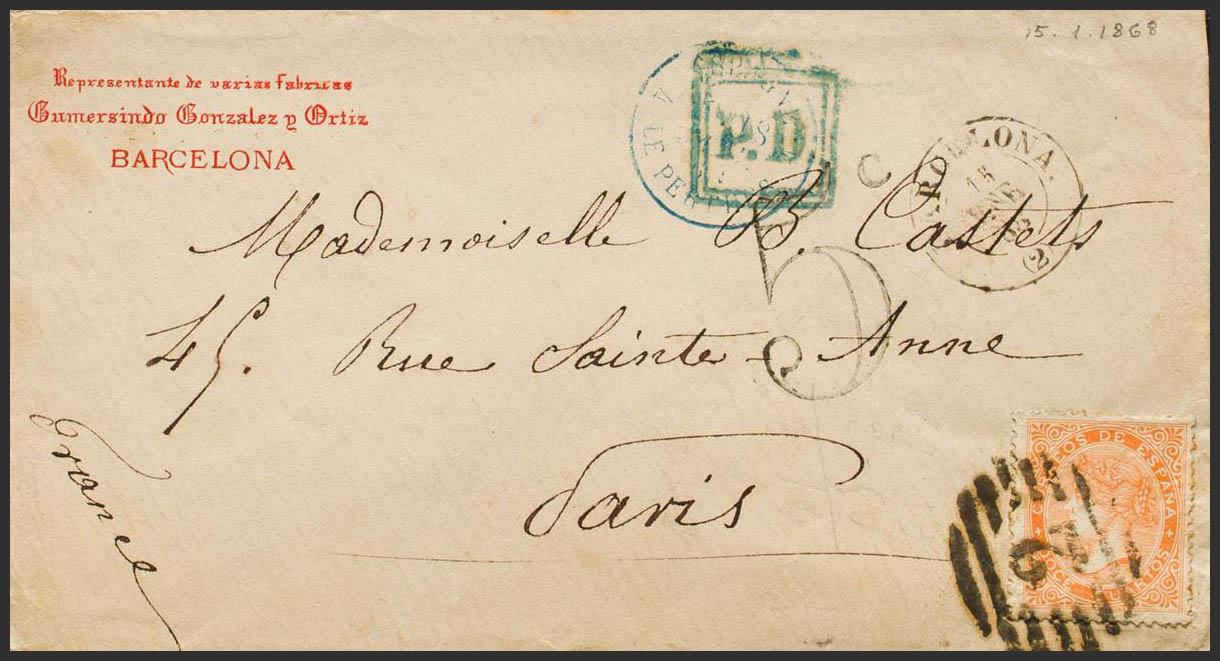 15.1.1868
Representante de varias fabricas
Gumersindo Gonzalez y Ortiz
BARCELONA
P.D
LE PERTHUS
C
BARCELONA.
15
ENE
(2)
Mademoiselle B. Castets
5
45. Rue Sainte-Anne
Paris
France
CORREOS DE ESPAÑA
DOCE CUARTOS
2